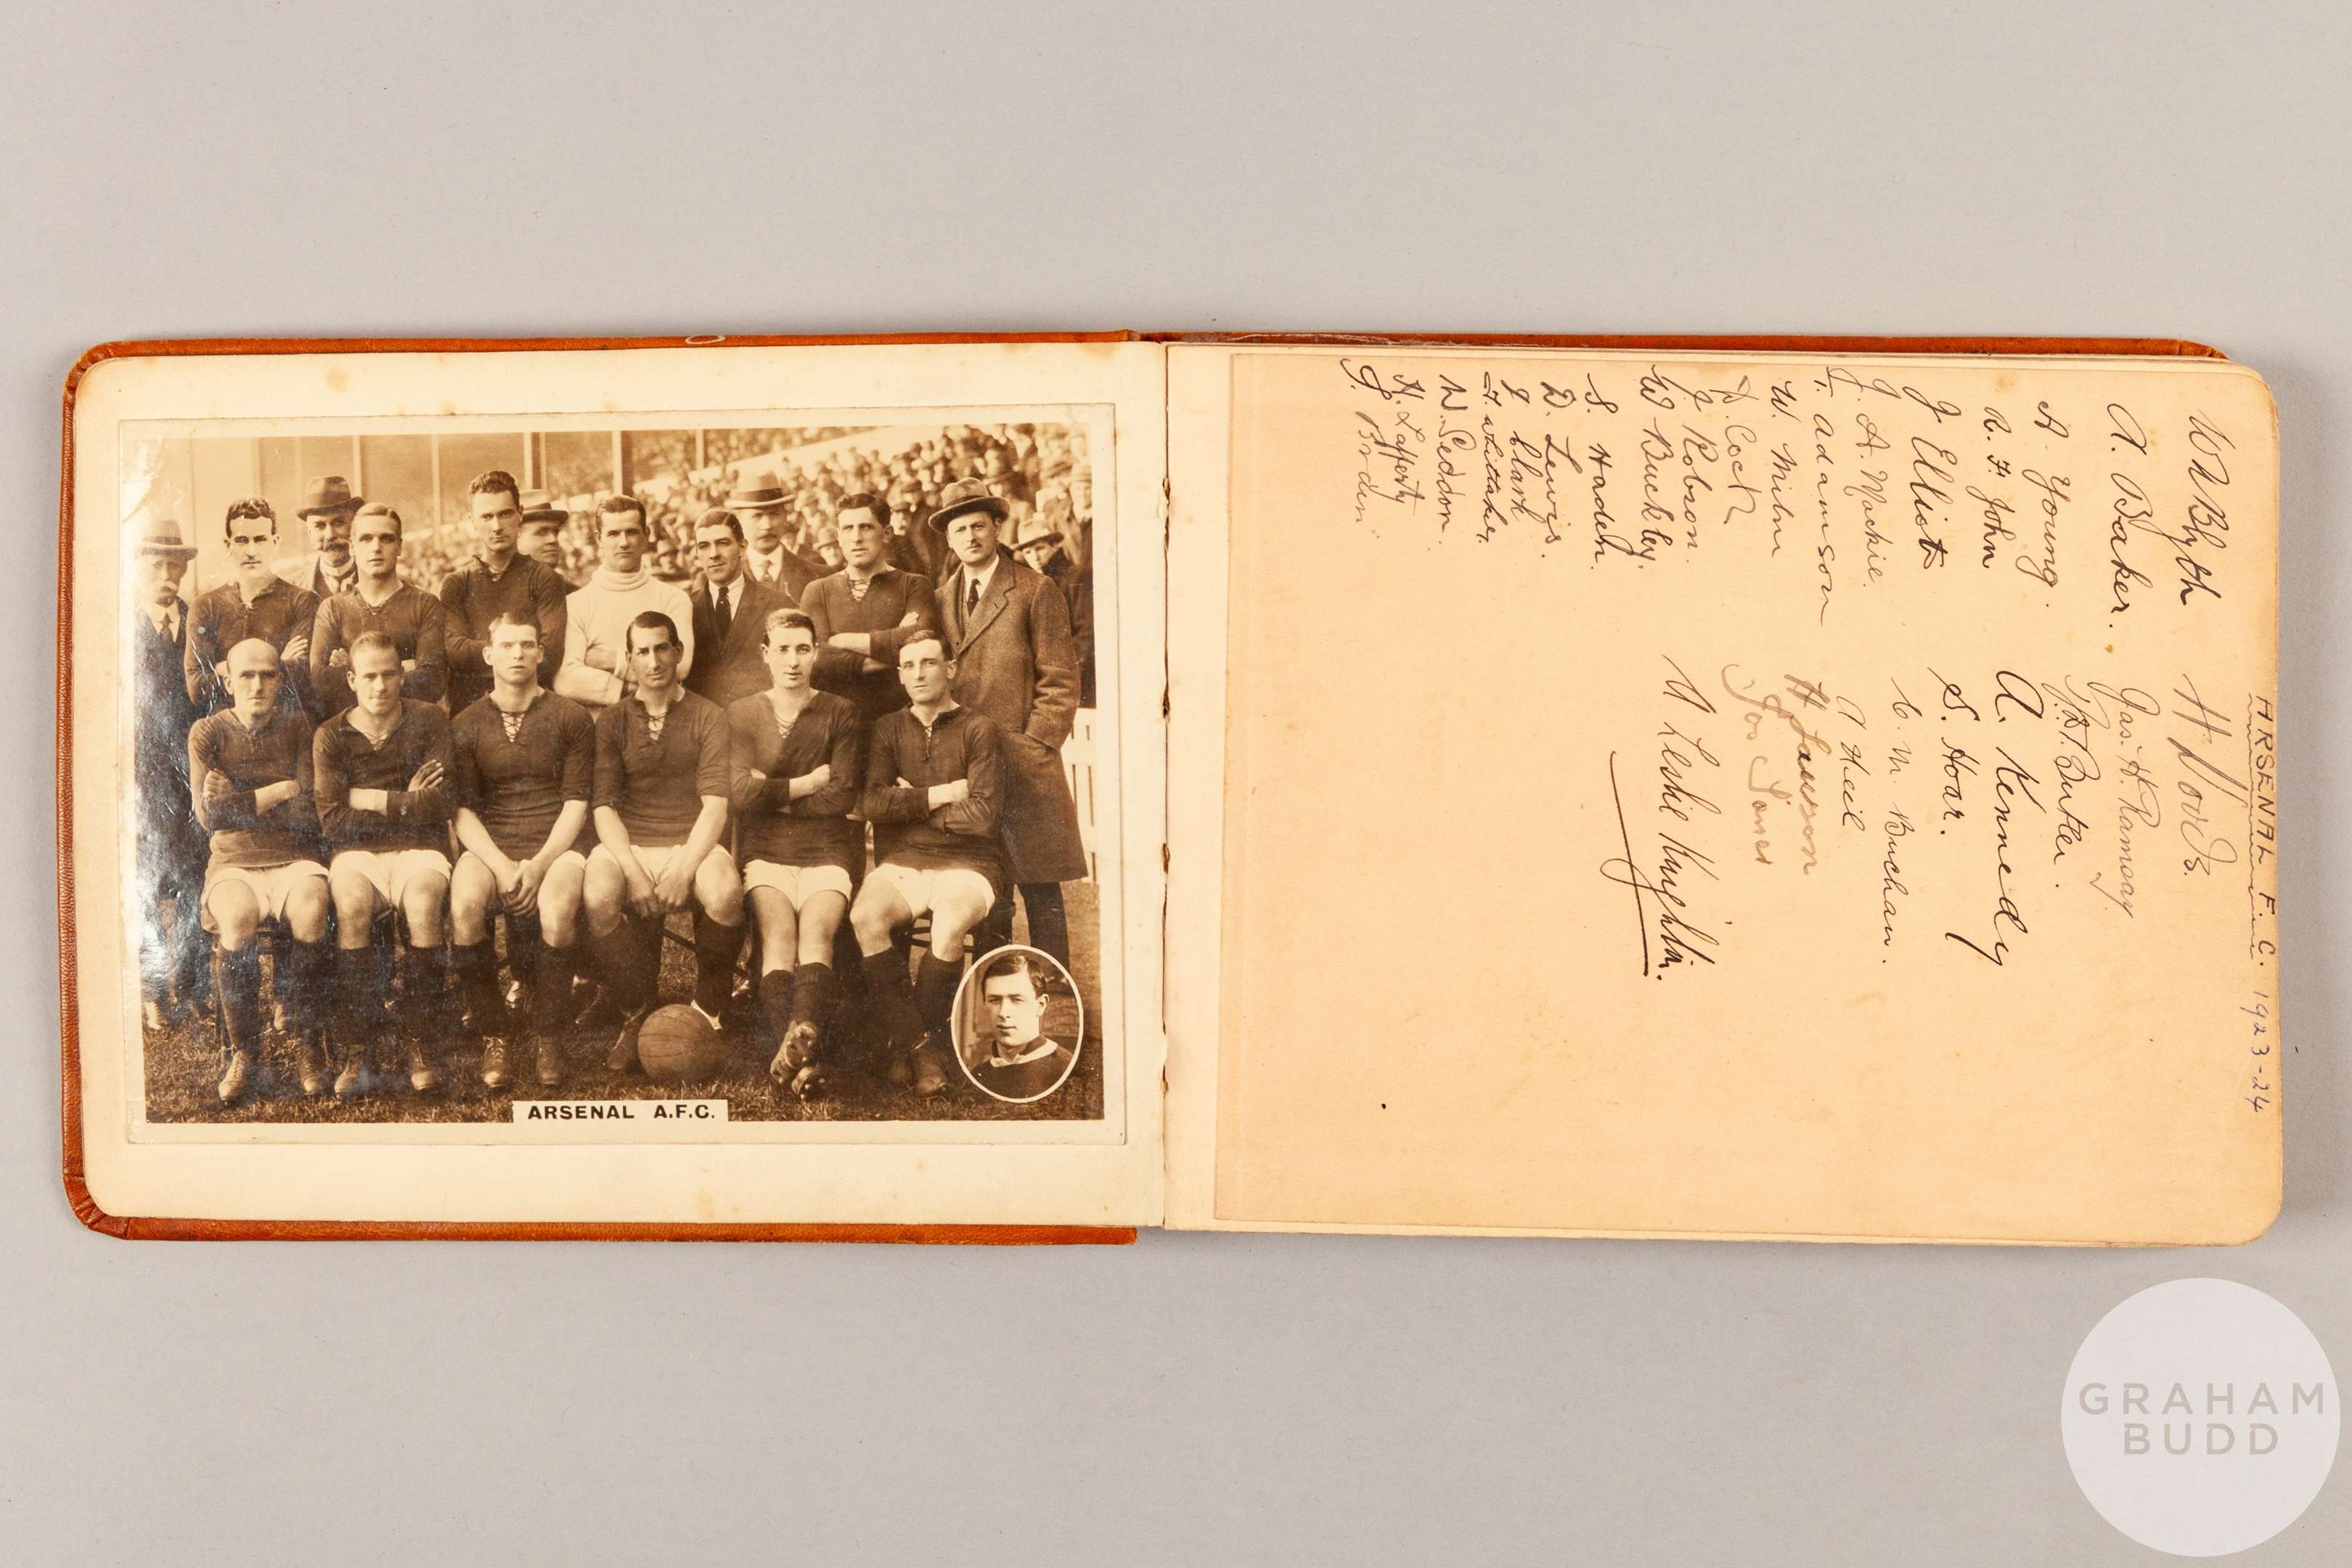 ARSENAL A.F.C.
ARSENAL F.C. 1923-24
W Blyth
A. Baker.
A. Young.
R. F. John
J. Elliott
J. A. Mackie.
T. adamson
W. Milne
D. Cock
J. Robson.
W Buckley.
S. Haden.
D. Lewis.
J. Clark
T. Whittaker.
W. Seddon.
H. Lafferty
H Woods.
Jas. H. Ramsay
J.D. Butler.
A. Kennedy
S. Hoar.
C. M Buchan.
A Neil
H Lawson
Joe Jones
Leslie Knighton.
GRAHAM
BUDD